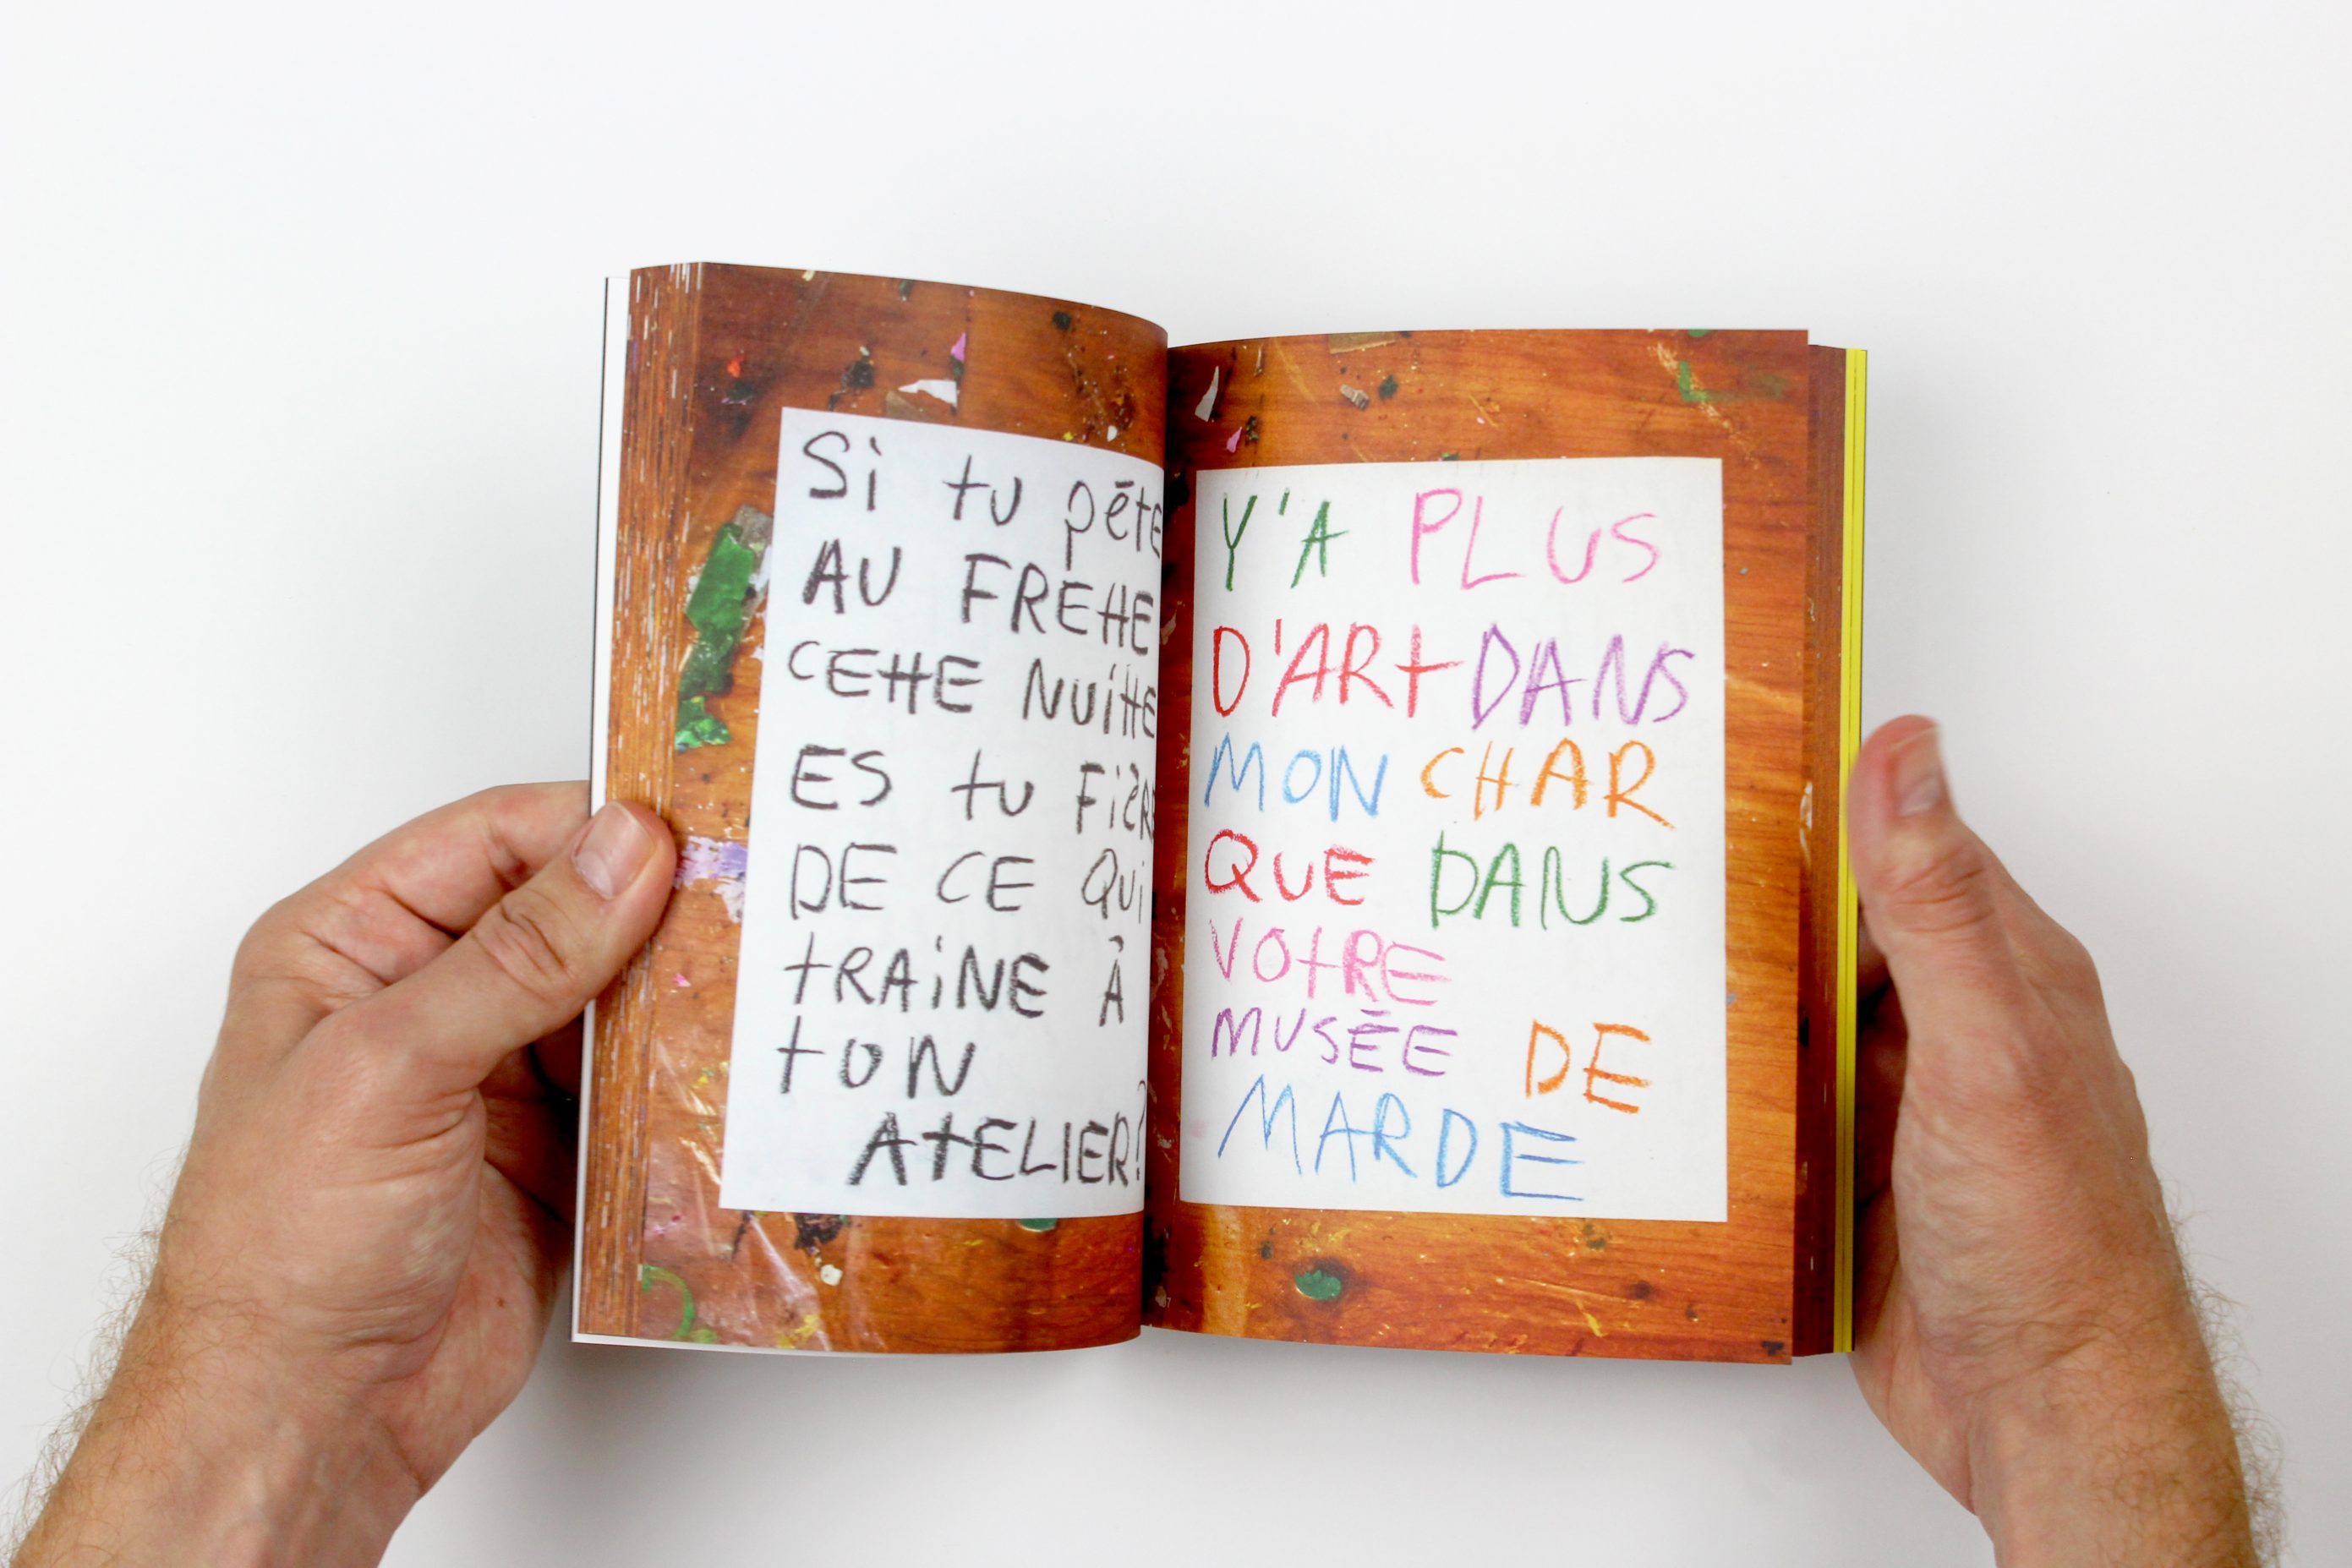 Si tu pēte
AU FRETTE
CETTE NUITTE
ES tu FiÈRE
DE CE QUi
tRAiNE À
tON
ATELIER?
Y'A PLUS
D'ARt DANS
MON CHAR
QUE DANS
VOtRE
MUSÉE DE
MARDE